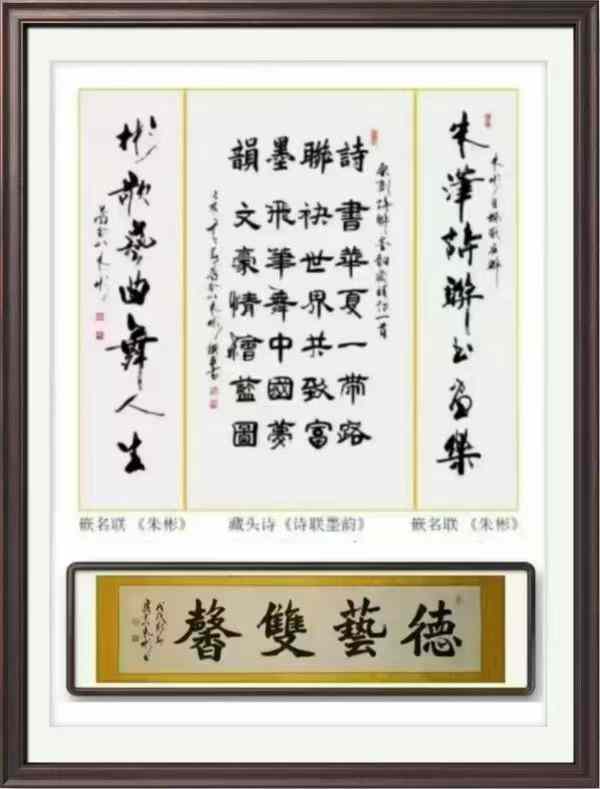 朱澤詩聯书画集
朱彬自撰嵌名联
詩書華夏一帶路
聯袂世界共致富
墨飛筆舞中國夢
韻文豪情繪藍圖
彬歌藝曲舞人生
嵌名联《朱彬》
藏头诗《诗联墨韵》
嵌名联《朱彬》
德藝雙馨